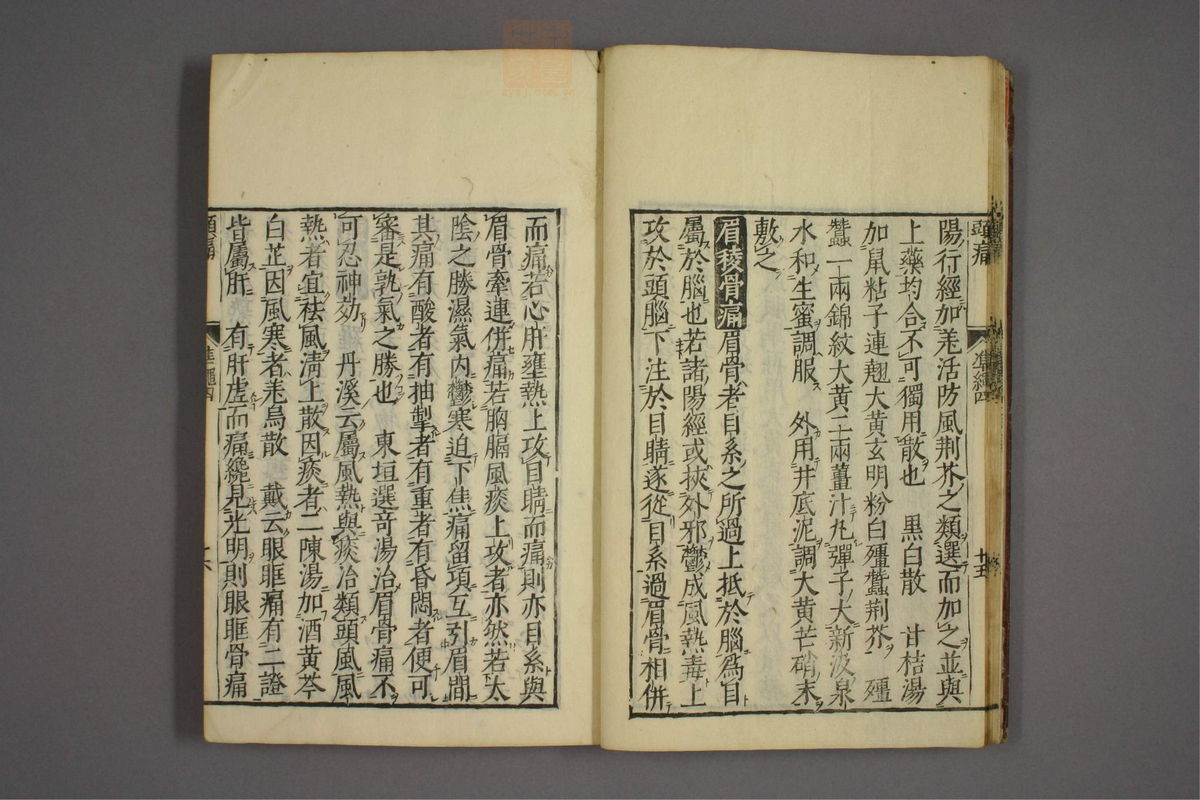 頭痛
陽行經加羗活防風荆芥之類選而加之並與
上藥均合不可獨用散也　黒白散　甘桔湯
加鼠粘子連翹大黃玄明粉白殭蠶荆芥　殭
蠶一兩錦紋大黃二兩薑汁凢彈子大新汲泉
水和生蜜調服　外用井底泥調大黃芒硝末
敷之
眉稜骨痛眉骨者目系之所過上抵於腦為目
屬於腦也若諸陽經或挾外邪鬱成風熱毒上
攻於頭腦下注於目睛遂從目系過眉骨相併
而痛若心肝壅熱上攻目睛而痛則亦目系與
眉骨牽連併痛若胸膈風痰上攻者亦然若太
陰之勝濕氣内鬱寒迫下焦痛留項互引眉間
其痛有酸者有抽掣者有重者有昏悶者便可
審是孰氣之勝也　東垣選竒湯治眉骨痛不
可忍神効　丹溪云屬風熱與痰治類頭風風
熱者宜祛風淸上散因痰者二陳湯加酒黃芩
白芷因風寒者羗烏散　戴云眼眶痛有二證
皆屬肝　有肝虛而痛纔見光明則眼眶骨痛
頭痛
準繩四